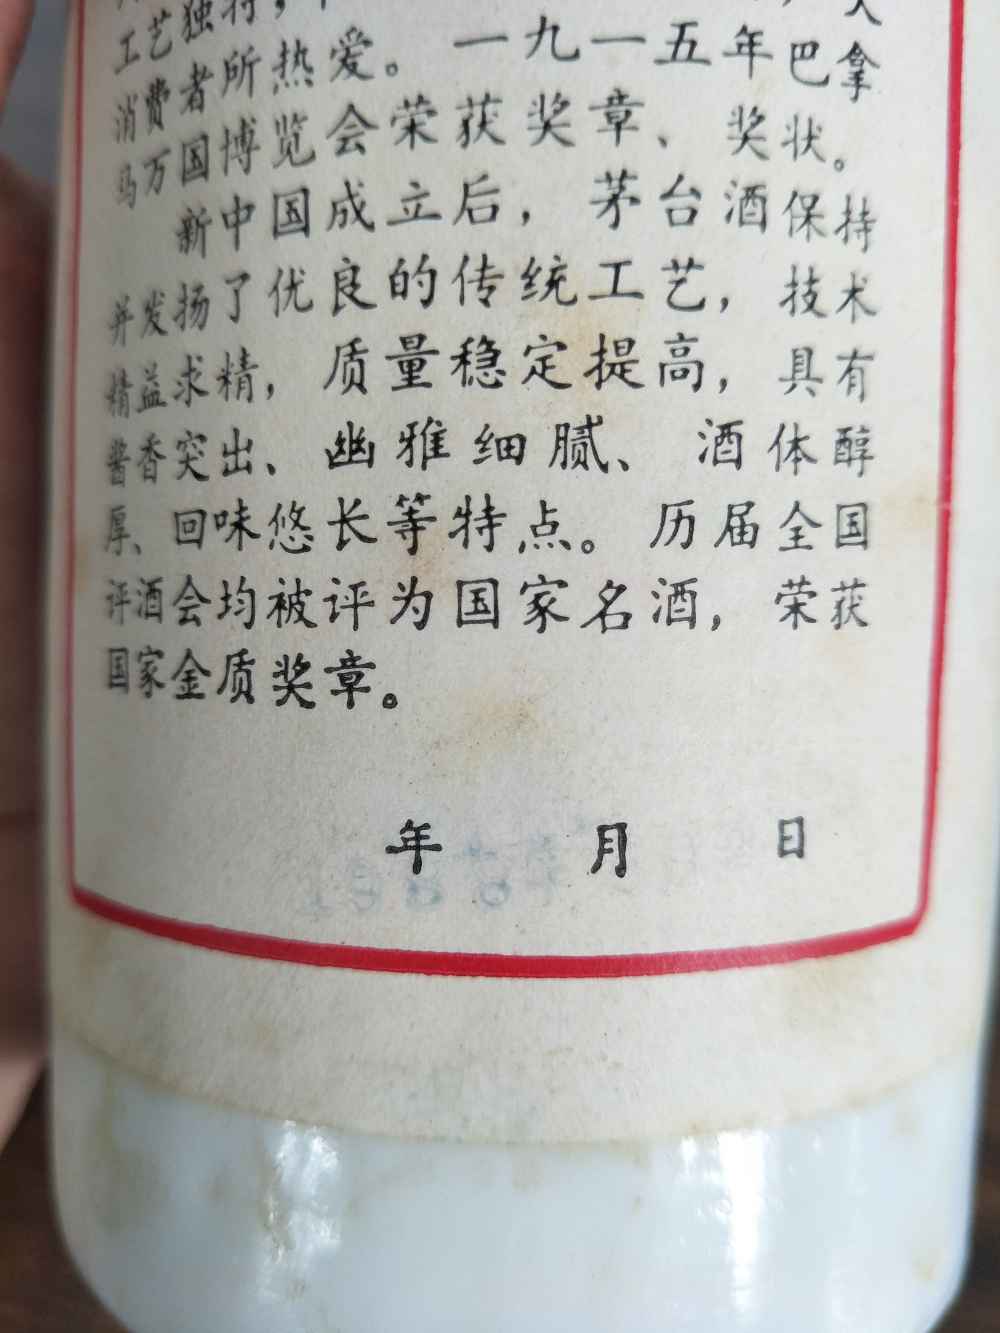 工艺独特，
消费者所热爱。一九一五年巴拿
马万国博览会荣获奖章、奖状。
新中国成立后，茅台酒保持
并发扬了优良的传统工艺，技术
精益求精，质量稳定提高，具有
酱香突出、幽雅细腻、酒体醇
厚、回味悠长等特点。历届全国
评酒会均被评为国家名酒，荣获
国家金质奖章。
年 月 日